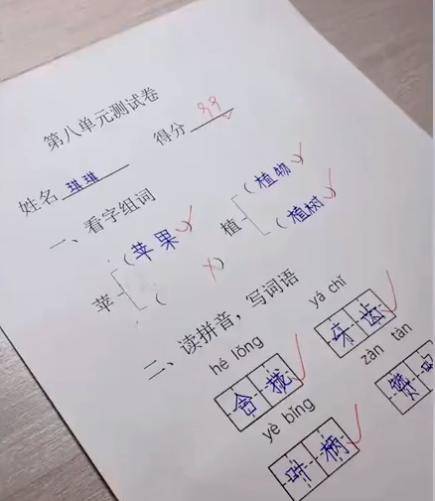 第八单元测试卷
得分 99
姓名 琪琪
一、看字组词
苹 (苹果) 植 (植物)
( ) (植树)
二、读拼音，写词语
hé lǒng yá chǐ
合拢 牙齿
yè bǐng zàn tàn
叶柄 赞叹